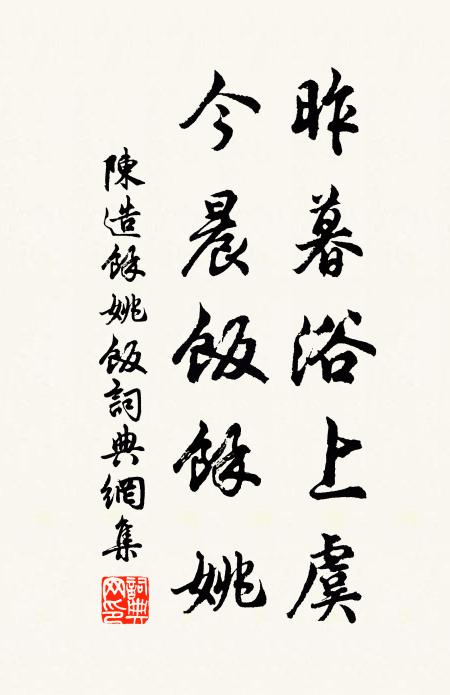 昨暮浴上虞
今晨飯餘姚
陳造餘姚飯詞典網集
詞典网印